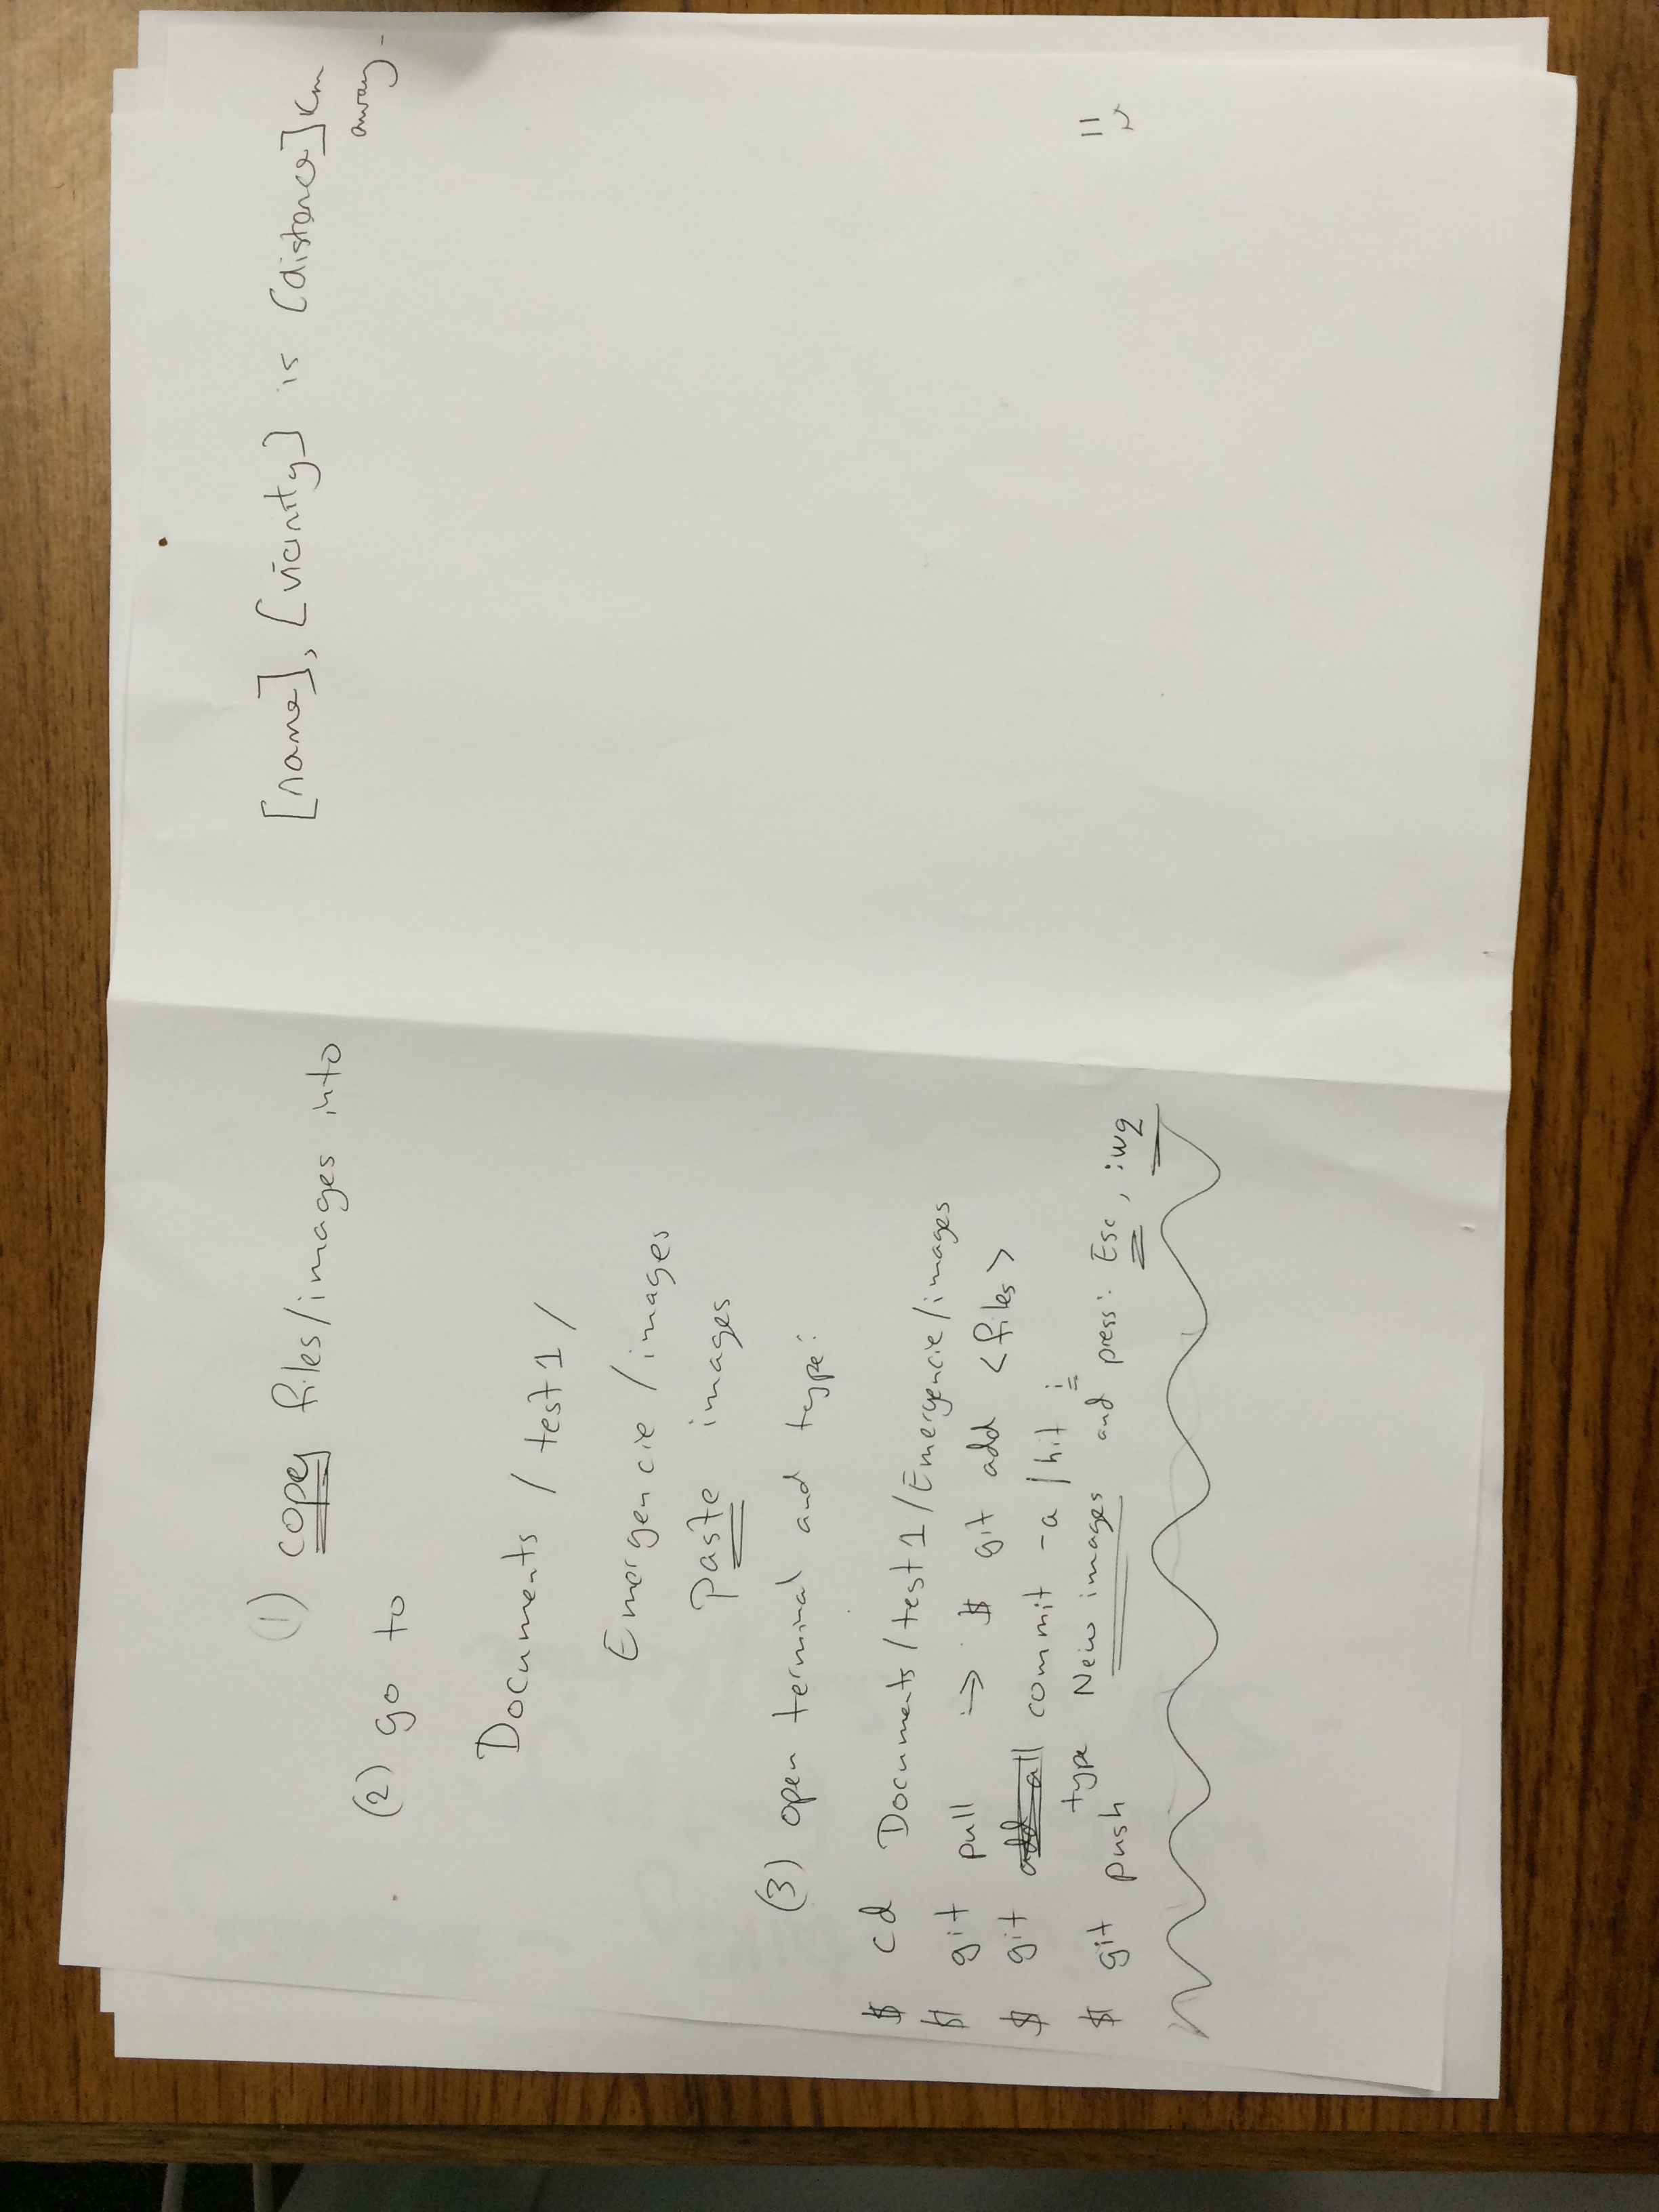 (1) copy files/images into
(2) go to
Documents / test1 /
Emergencie / images
Paste images
(3) open terminal and type:
$ cd Documents/test1/Emergencie/images
$ git pull -> $ git add <files>
$ git add all commit -a / hit i
type New images and press: Esc, :wq
$ git push
[name], [vicinity] is [distance] km
away.